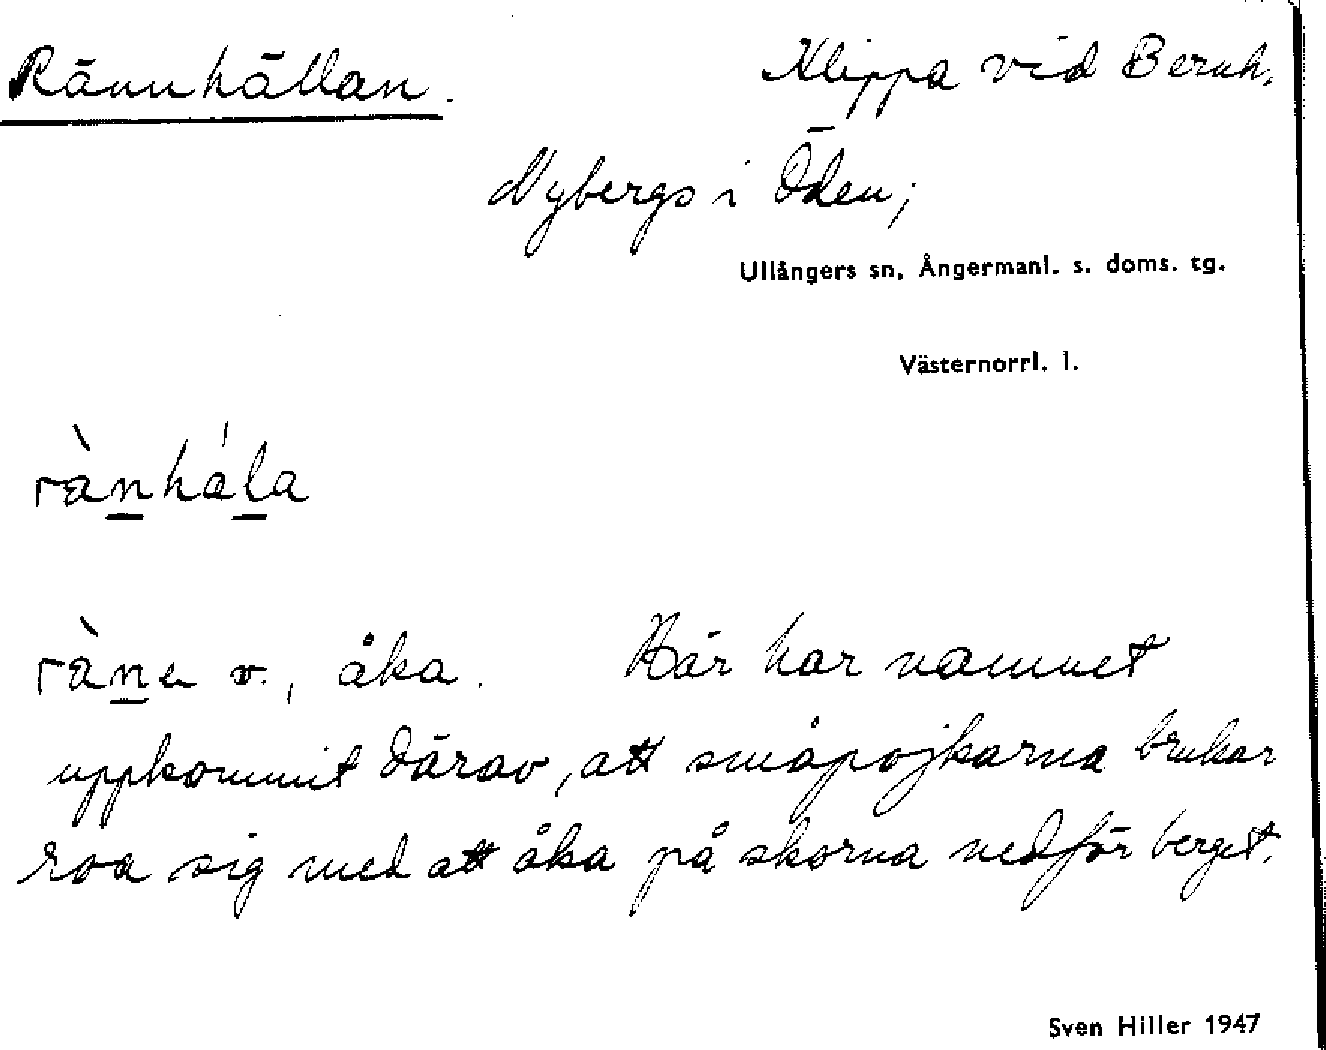 Rännhällan.
Klippa vid Bernh.
Nybergs i Öden;
Ullångers sn, Ångermanl. s. doms. tg.
Västernorrl. l.
rànhála
ràna v., åka. Här har namnet
uppkommit därav, att småpojkarna brukar
roa sig med att åka på skorna nedför berget.
Sven Hiller 1947